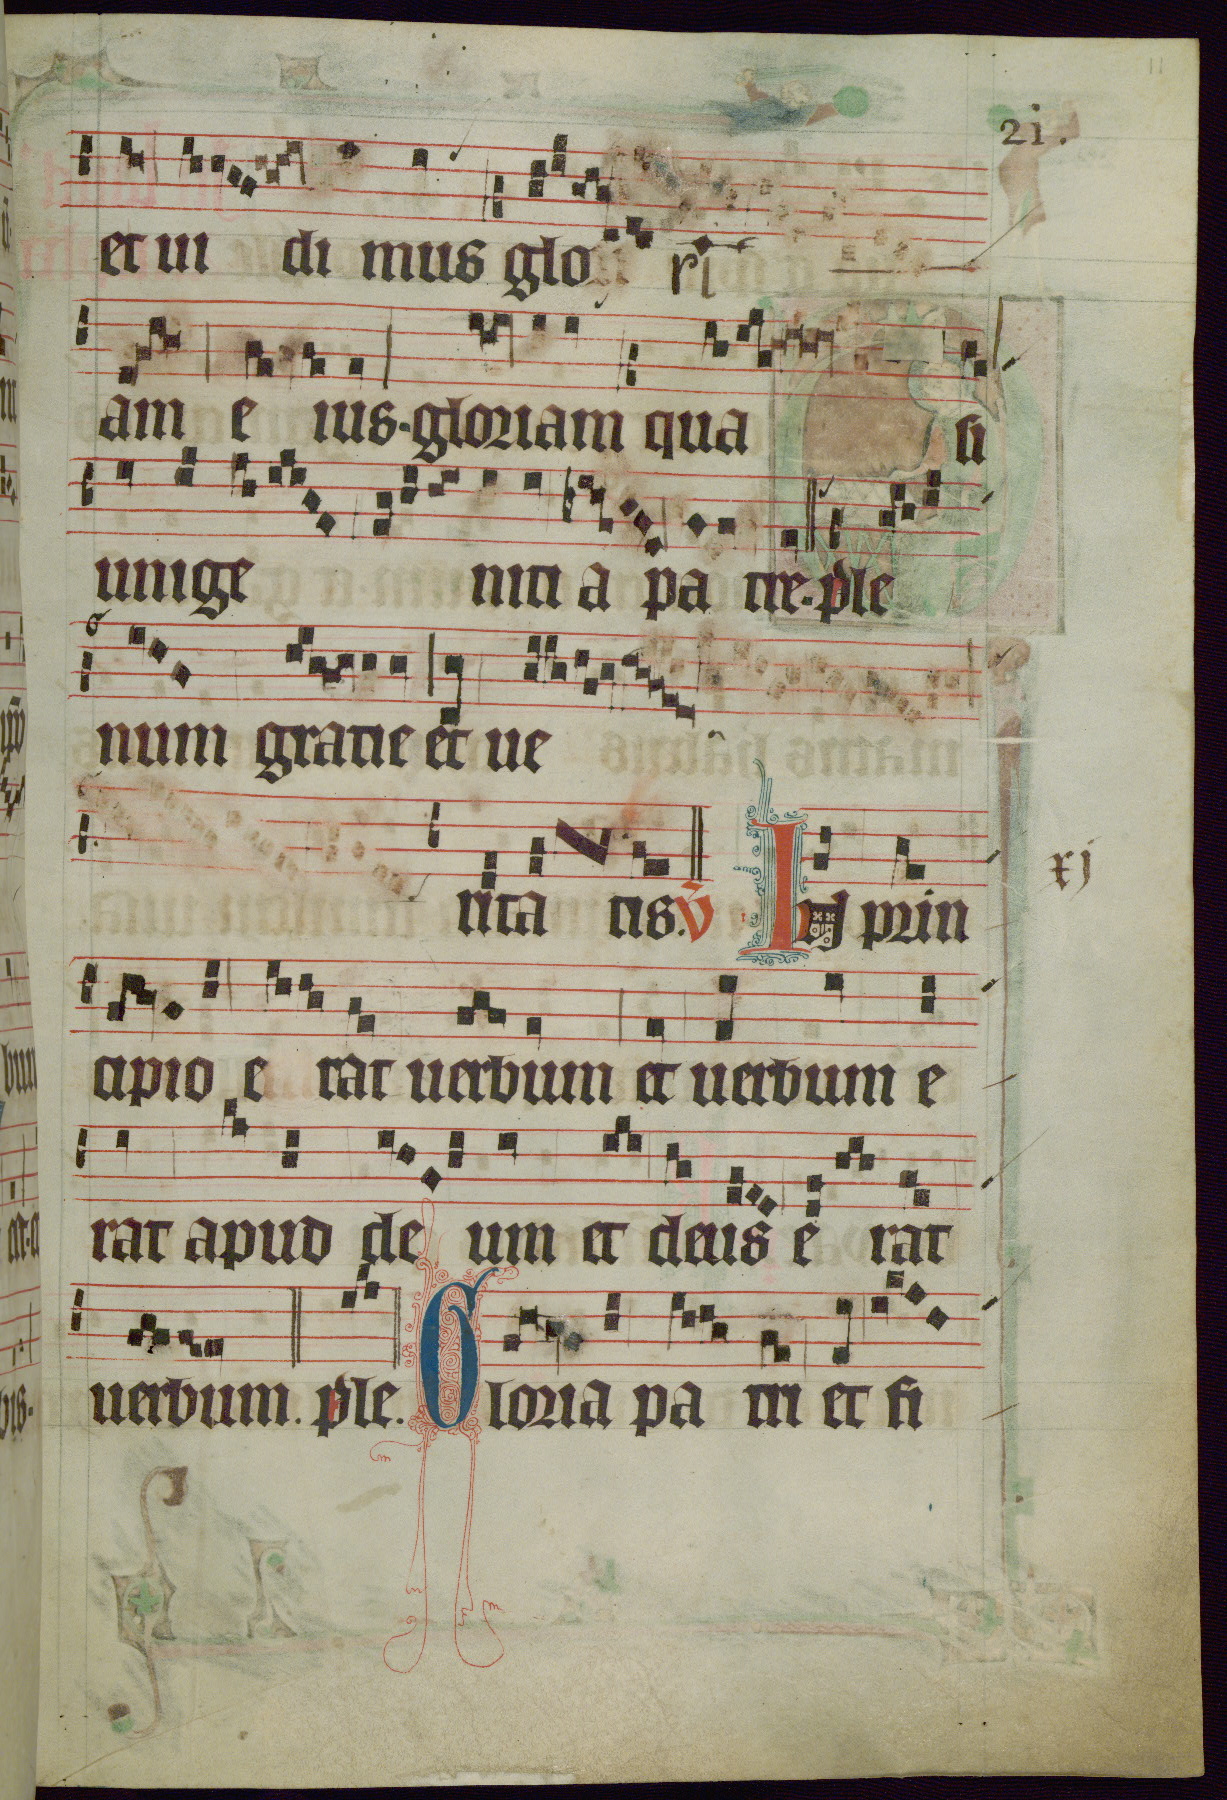 11
21.
et ui di mus glo ri
am e ius. gloriam qua si
unige niti a pa tre. ple
num gratie et ue
rita tis. v̄ In prin
xj
cipio e rat uerbum et uerbum e
rat apud de um et deus e rat
uerbum. ple. Gloria pa tri et fi